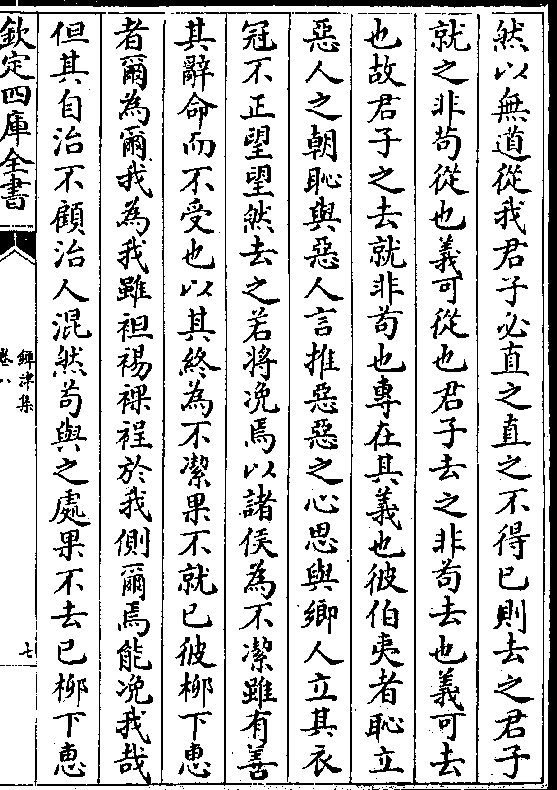 然以無道從我君子必直之直之不得已則去之君子
就之非苟從也義可從也君子去之非苟去也義可去
也故君子之去就非苟也專在其義也彼伯夷者恥立
惡人之朝恥與惡人言推惡惡之心思與鄉人立其衣
冠不正望望然去之若將凂焉以諸侯為不潔雖有善
其辭命而不受也以其終為不潔果不就已彼柳下惠
者爾為爾我為我雖袒裼裸裎於我側爾焉能凂我哉
但其自治不顧治人混然苟與之處果不去已柳下惠
欽定四庫全書
鐔津集
卷八
七